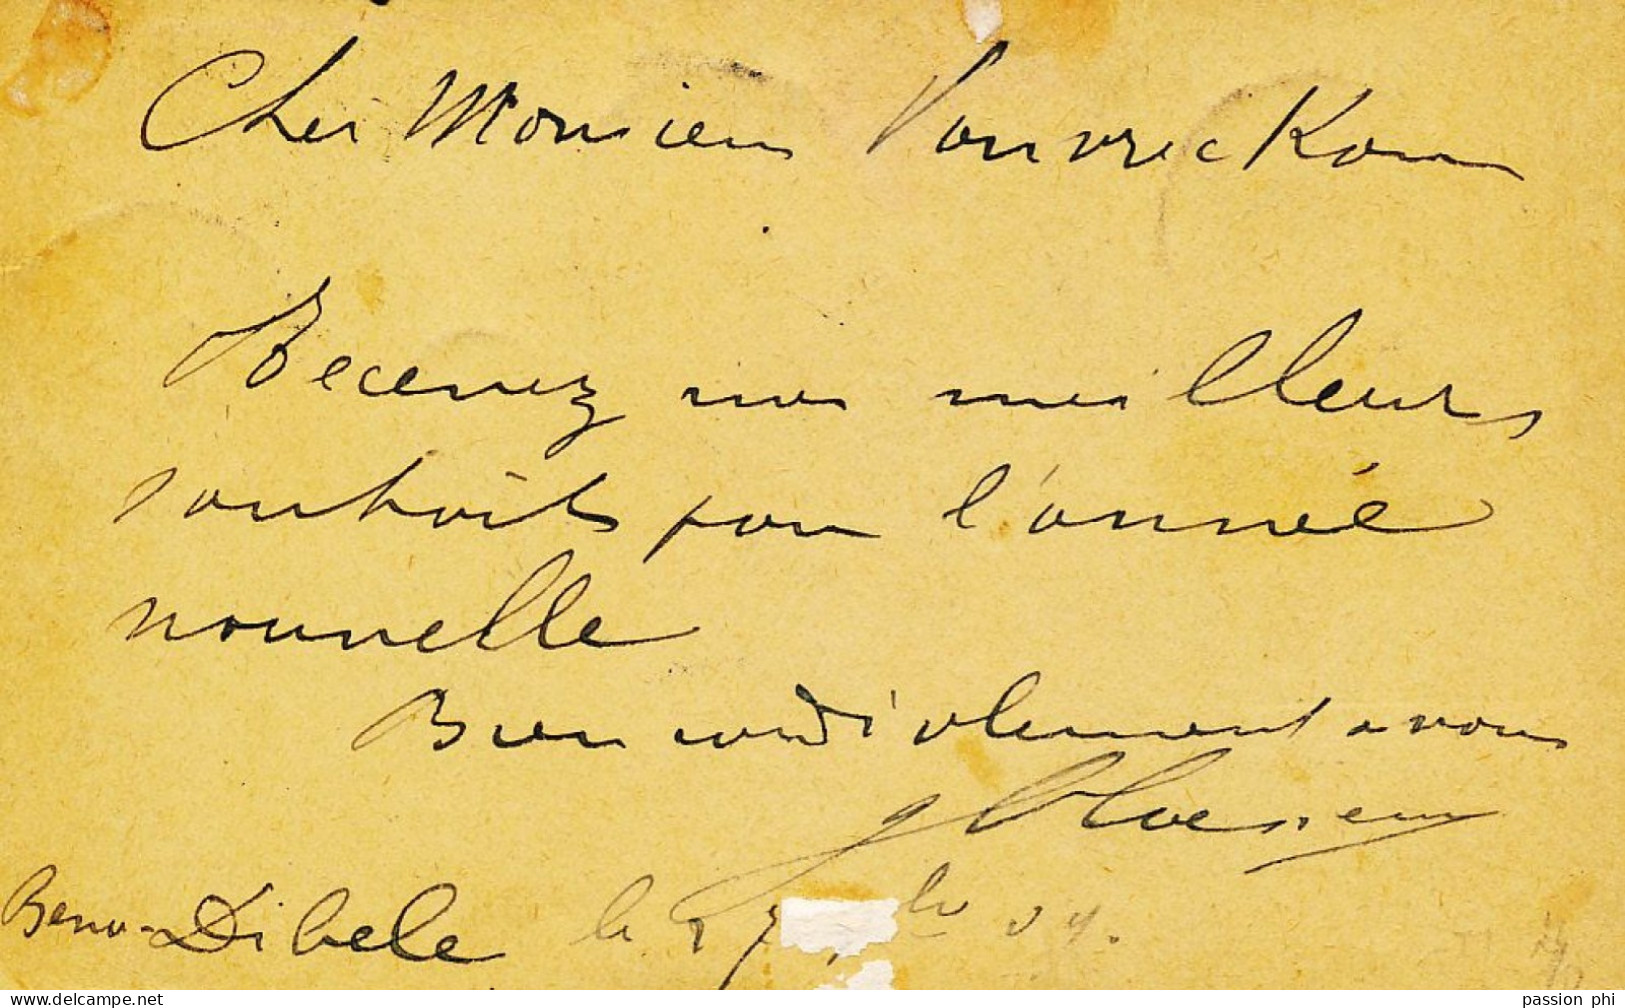 Cher Monsieur Vanvreckom
Recevez nos meilleurs
souhaits pour l'année
nouvelle
Bien cordialement a vous
Bena-Dibele le 27 04.
www.delcampe.net
passion phi